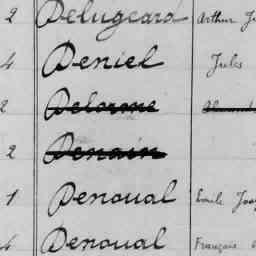 2 Delugeard Arthur
4 Deniel Jules
2 Delorme
2 Denain
1 Denoual Emile
Denoual François